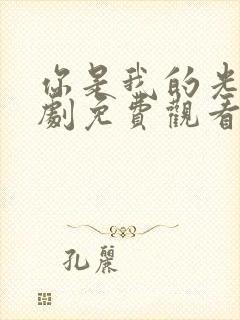 你是我的光
劇免費觀看
孔麗